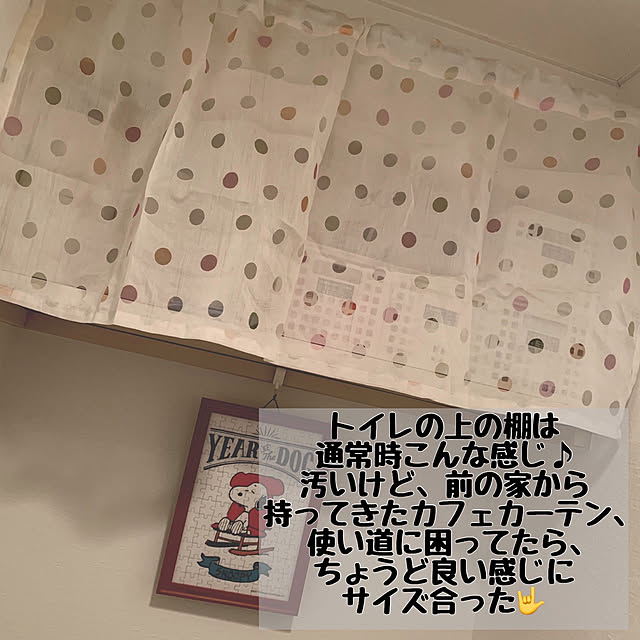 YEAR of the DOG
トイレの上の棚は
通常時こんな感じ♪
汚いけど、前の家から
持ってきたカフェカーテン、
使い道に困ってたら、
ちょうど良い感じに
サイズ合った🤟